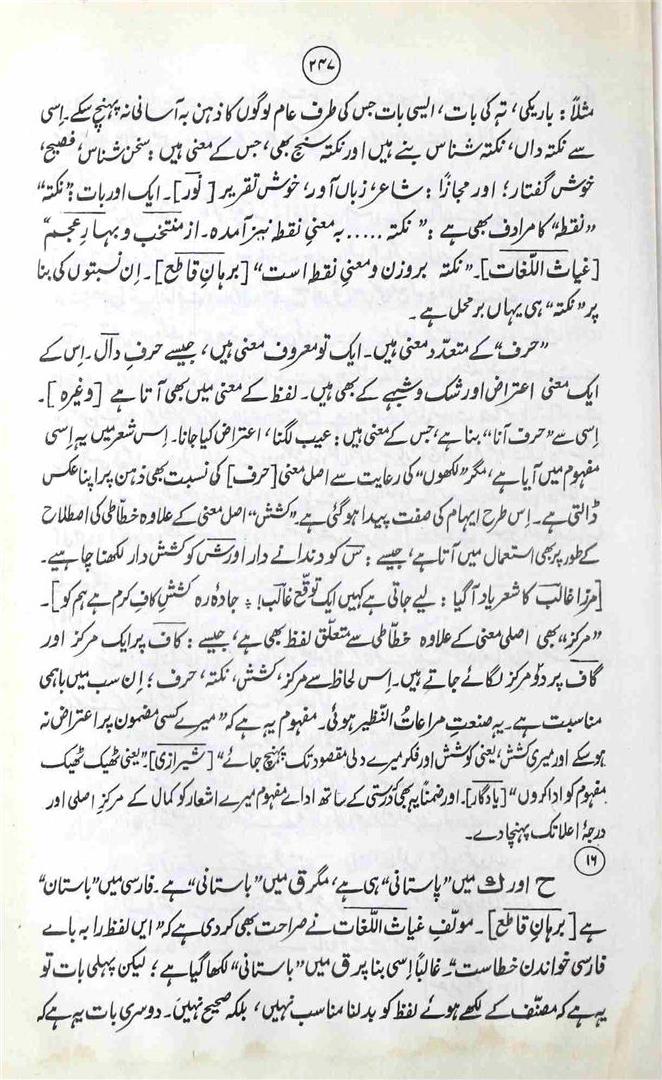 ۲۴۷
مثلاً: باریکی، تہ کی بات، ایسی بات جس کی طرف عام لوگوں کا ذہن بہ آسانی نہ پہنچ سکے۔ اِسی
سے نکتہ داں، نکتہ شناس بنے ہیں اور نکتہ سنج بھی، جس کے معنی ہیں: سخن شناس، فصیح،
خوش گفتار؛ اور مجازاً: شاعر، زباں آور، خوش تقریر [نور]۔ ایک اور بات: "نکتہ"
"نقطہ" کا مرادف بھی ہے: "نکتہ ..... بہ معنیِ نقطہ نیز آمدہ۔ از منتخب و بہارِ عجم"
[غیاث اللغات]۔ "نکتہ بروزن و معنیِ نقطہ است" [برہانِ قاطع]۔ اِن نسبتوں کی بنا
پر "نکتہ" ہی یہاں بر محل ہے۔
"حرف" کے متعدّد معنی ہیں۔ ایک تو معروف معنی ہیں، جیسے حرفِ دال۔ اِس کے
ایک معنی اعتراض اور شک و شبہے کے بھی ہیں۔ لفظ کے معنی میں بھی آتا ہے [وغیرہ]۔
اِسی سے "حرف آنا" بنا ہے، جس کے معنی ہیں: عیب لگنا، اعتراض کیا جانا۔ اِس شعر میں یہ اِسی
مفہوم میں آیا ہے، مگر "لکھوں" کی رعایت سے اصل معنی [حرف] کی نسبت بھی ذہن پر اپنا عکس
ڈالتی ہے۔ اِس طرح ایہام کی صفت پیدا ہو گئی ہے۔ "کشش" اصل معنی کے علاوہ خطّاطی کی اصطلاح
کے طور پر بھی استعمال میں آتا ہے، جیسے: س کو دندانے دار اور ش کو کشش دار لکھنا چاہیے۔
[مرزا غالب کا شعر یاد آگیا: لیے جاتی ہے کہیں ایک توقّع غالب! ؛ جادۂ رہ کششِ کافِ کرم ہے ہم کو]۔
"مرکز" بھی اصلی معنی کے علاوہ خطّاطی سے متعلّق لفظ بھی ہے، جیسے: کاف پر ایک مرکز اور
گاف پر دو مرکز لگائے جاتے ہیں۔ اِس لحاظ سے مرکز، کشش، نکتہ، حرف؛ اِن سب میں باہمی
مناسبت ہے۔ یہ صنعتِ مراعاتُ النّظیر ہوئی۔ مفہوم یہ ہے کہ "میرے کسی مضمون پر اعتراض نہ
ہو سکے اور میری کشش، یعنی کوشش اور فکر میرے دلی مقصود تک پہنچ جائے" [شیرازی]۔ "یعنی ٹھیک ٹھیک
مفہوم کو ادا کروں" [یادگار]۔ اور ضمناً یہ بھی کہ درستی کے ساتھ اداے مفہوم میرے اشعار کو کمال کے مرکزِ اصلی اور
درجۂ اعلا تک پہنچا دے۔
۱۶
ح اور ک میں "پاستانی" ہی ہے، مگر ق میں "باستانی" ہے۔ فارسی میں "باستان"
ہے [برہانِ قاطع]۔ مولّفِ غیاث اللغات نے صراحت بھی کر دی ہے کہ "ایں لفظ را بہ باے
فارسی خواندن خطاست"۔ غالباً اِسی بنا پر ق میں "باستانی" لکھا گیا ہے؛ لیکن پہلی بات تو
یہ ہے کہ مصنّف کے لکھے ہوئے لفظ کو بدلنا مناسب نہیں، بلکہ صحیح نہیں۔ دوسری بات یہ ہے کہ